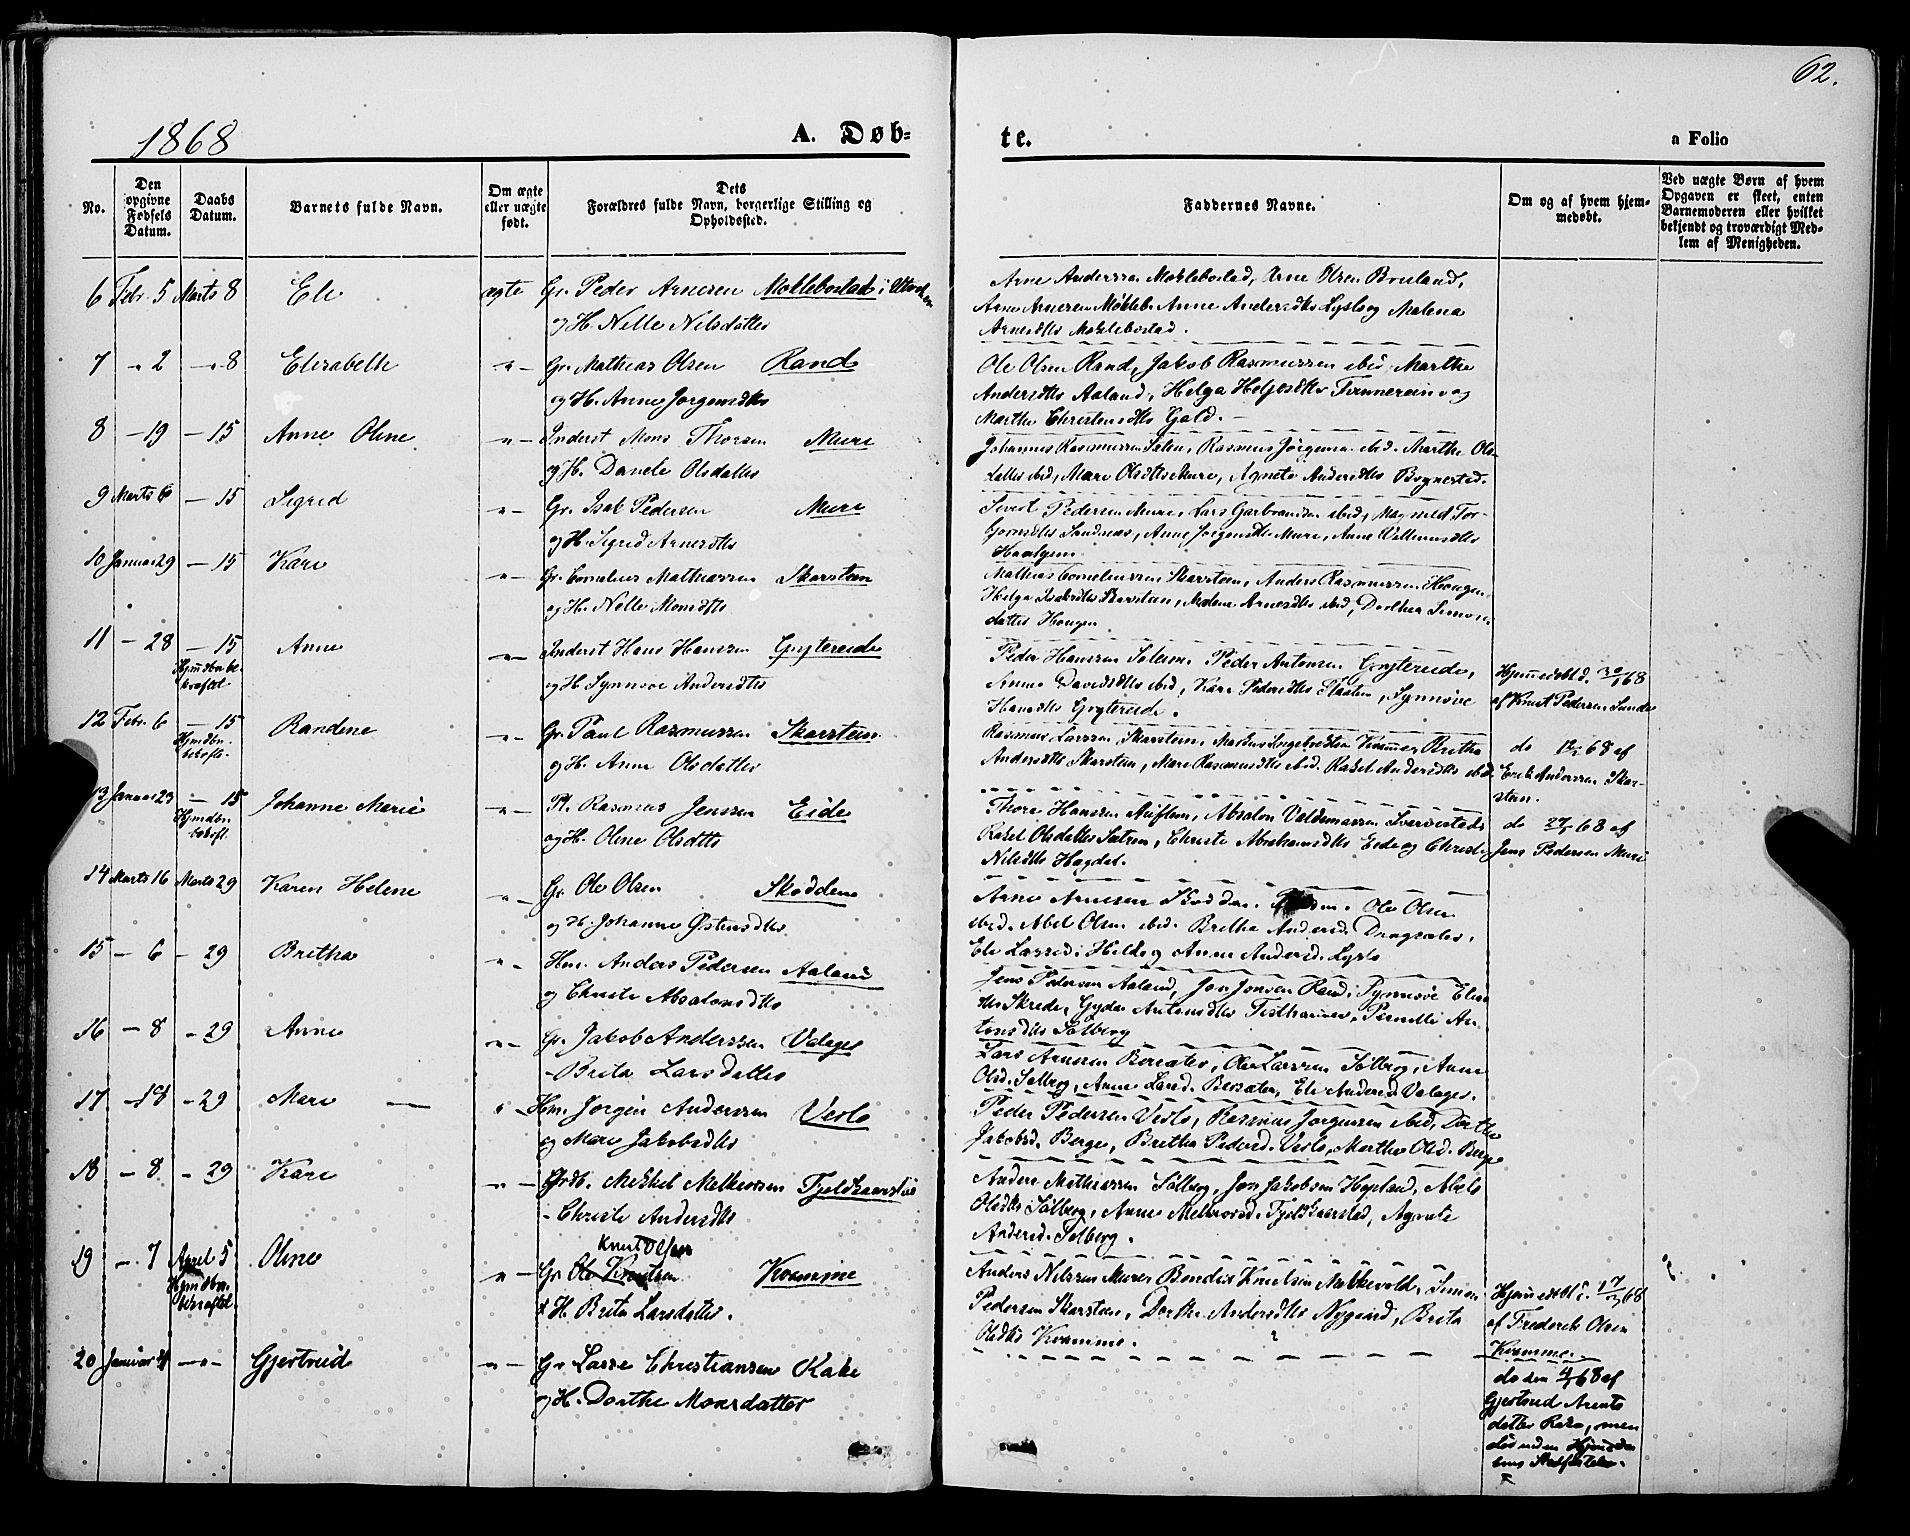 62.
1868
A. Døb-
te.
a Folio
No.
Den opgivne Fødsels Datum.
Daabs Datum.
Barnets fulde Navn.
Om ægte eller uægte født.
Dets Forældres fulde Navn, borgerlige Stilling og Opholdssted.
Faddernes Navne.
Om og af hvem hjemmedøbt.
Ved uægte Børn af hvem Opgaven er skeet, enten Barnemoderen eller hvilket bekjendt og troværdigt Medlem af Menigheden.
6 Febr. 5 Marts 8 Eli ægte Gr. Peder Arnesen Møklebostad i
og H. Nille Nilsdatter
Arne Anderssen Moklebostad, Arne Olsen Bruland,
Arne Arnesen Mökleb. Anne Andersdtr Lyslo og Malena
Arnesdtr Moklebostad.
7 -"- 2 -"- 8 Elisabeth -"- Gr. Mathias Olsen Rand
og H. Anne Jørgensdtr
Ole Olsen Rand, Jakob Rasmussen ibid, Marthe
Andersdtr Aaland, Helga Helgesdtr og
Marthe Christensdtr Gald. -
8 - 19 - 15 Anne Oline -"- Inderst Mons Thorsen Muri
og H. Danele Olsdatter
Johannes Rasmussen Solem, Rasmus Jørgensen ibid. Marthe Ols-
datter ibid, Mari Olsdtr Mure, Agnete Andersdtr
9 Marts 6 - 15 Sigrid -"- Gr. Isak Pedersen Muri
og H. Sigrid Arnesdtr
Sivert Pedersen Mure, Lars Garbrandsen ibid, Magnild Tor-
bjørnsdtr Sandnes, Anne Jørgensdtr Mure, Anne Villumsdtr
10 Januar 29 - 15 Kari -"- Gr. Cornelius Mathiassen Skarstein
og H. Nille Monsdtr
Mathias Corneliussen Skarsteen, Anders Rasmussen Hougen
Helga Isaksdtr Skarsten, Malene Arnesdtr ibid, Dorthea Simons
datter Hougen
11 - 28 - 15 Anne -"- Inderst Hans Hanssen Grytereide
Hjmdbn be-
kræftet.
og H. Synnøve Andersdtr
Peder Hanssen Solem Peder Antonsen Gryterede,
Anne Davidsdtr ibid, Kari Pedersdtr , Synnöve
Hansdtr Gryterede.
Hjemmedøbt d. 30/1 68
af Knut Pedersen Sunde
12 Febr. 6 - 15 Randine -"- Gr. Paul Rasmussen Skarstein
Hjmdbn.
bekrft.
og H. Anne Olsdatter
Rasmus Larssen Skarstein, Markus Ingebrektsen Kvamme, Britha
Andersdtr Skarstein, Mari Rasmusdtr ibid. Rakel Andersdtr ibid.
do 12/2 68 af
Erik Anderssen Skar-
stein.
13 Januar 23 - 15 Johanne Marie -"- Pl. Rasmus Jenssen Eide
Hjmdbn
bekrft.
og H. Oline Olsdtr
Thore Hanssen , Absalon Valdemarssen
Rakel Olsdatter Sætren, Christi Abrahamsdtr Eide og Christi
Nilsdtr Hagdal.
do 27/1 68 af
Jens Pedersen Muri
14 Marts 16 Marts 29 Karen Helene -"- Gr. Ole Olsen Skodden
og H. Johanne Østensdtr
Arne Arnesen Skodden. Ole Olsen
ibid. Abel Olsen ibid. Britha Andersd. Dragsæter,
Eli Larsd. Hilde og Anne Andersd. Lyslo
15 - 6 - 29 Britha -"- Hm. Anders Pedersen Aaland
og Christi Absalonsdtr
Jens Pedersen Aaland, Jon Jonsen Rand, Synnøve Elias
dtr Skrede, Gyda Antonsdtr , Pernille An-
tonsdtr Solberg
16 - 8 - 29 Anne -"- Gr. Jakob Anderssen Valager
- Brita Larsdatter
Lars Arnesen Bersæter, Ole Larssen Sölberg, Anne
Olsd. Solberg, Anne Larsd. Bersæter, Eli Andersd. Valager.
17 - 18 - 29 Mari -"- Hm. Jørgen Anderssen Verlo
og Mari Jakobsdtr
Peder Pedersen Verlo, Rasmus Jørgensen ibid, Dorthe
Jakobsd. Berge, Britha Pedersd. Verlo, Marthe Olsd. Berge
18 - 8 - 29 Kari -"- Mikkel Melkiorssen Fjeldskaarstad
- Christi Andersdtr
Anders Mathiassen Solberg, Jon Jakobsen Hopland, Abelo
Olsdtr Sölberg, Anne Melkiorsd. Fjeldskaarstad, Agnete
Andersd. Solberg.
19 - 7 April 5 Oline -"- Gr. Ole Knutsen Kvamme
Knut Olsen
Hjmdbn.
bekræftet
& H. Brita Larsdatter.
Anders Nilssen Muri Bendix Knutsen , Simon
Pedersen Skarsten, Dorthe Andersdtr Nygaard, Brita
Olsdtr Kvamme.
Hjemmedøbt d. 17/3 68
af Frederik Olsen
Kvamme.
20 Januar 4 -"- Gjertrud -"- Gr. Lasse Christiansen Rake
og H. Dorthe Monsdatter
do den 4/1 68 af
Gjertrud Arents
datter Rake, men
død uden Hjemmedaa
bens Stadfæstelse.